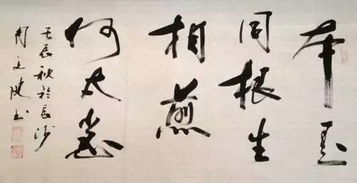 本是
同根生
相煎
何太急
壬辰秋於長沙